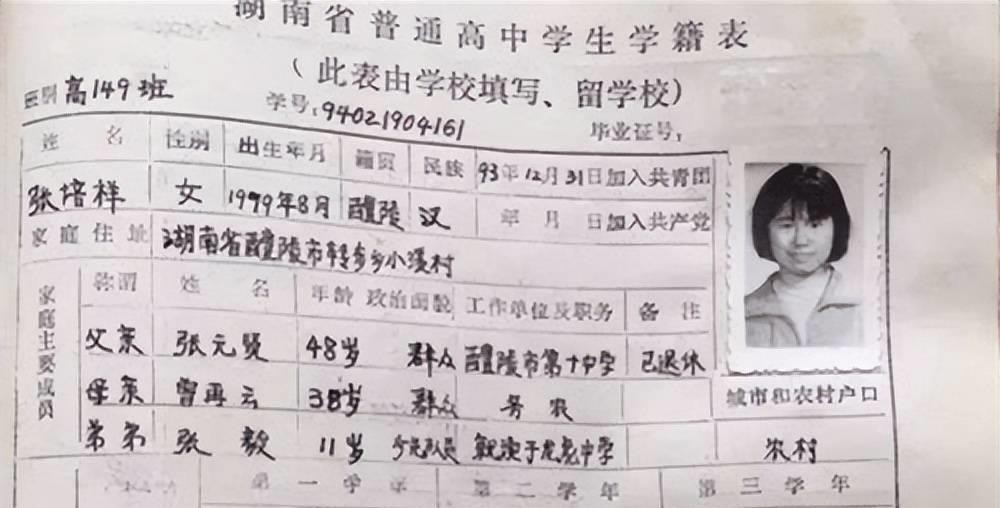 湖南省普通高中学生学籍表
(此表由学校填写、留学校)
班别 高149班
学号:94021904161 毕业证号:
姓名 性别 出生年月 籍贯 民族 93年12月31日加入共青团
张培祥 女 1979年8月 醴陵 汉 年月日加入共产党
家庭住址 湖南省醴陵市转步乡小溪村
家庭主要成员
称谓 姓名 年龄 政治面貌 工作单位及职务 备注
父亲 张元贤 48岁 群众 醴陵市第十中学 已退休
母亲 曾再云 38岁 群众 务农
弟弟 张毅 11岁 少先队员 就读于龙虎中学
城市和农村户口
农村
第一学年 第二学年 第三学年